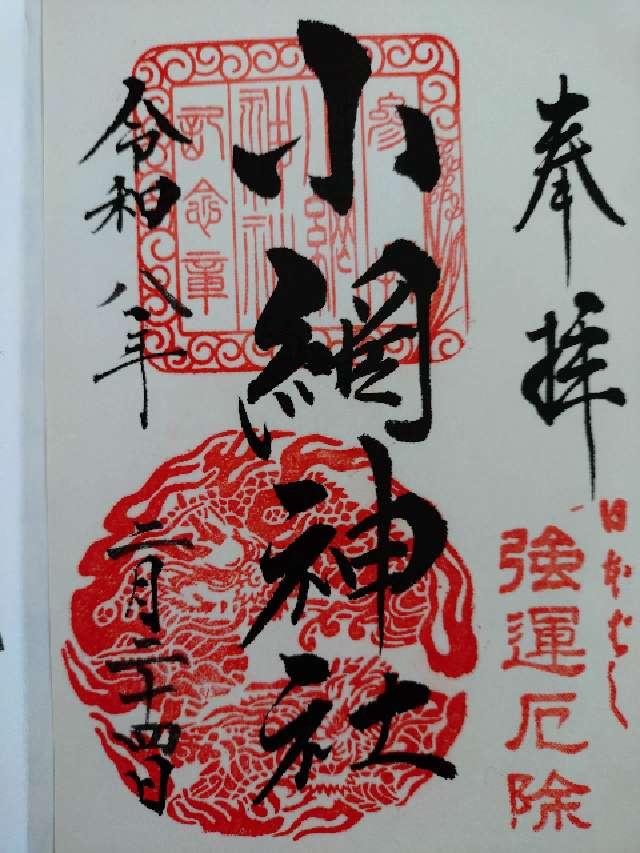 奉拝
日本ばし
強運厄除
小網神社
参拝
小網
神社
記念章
令和八年
二月二十四日